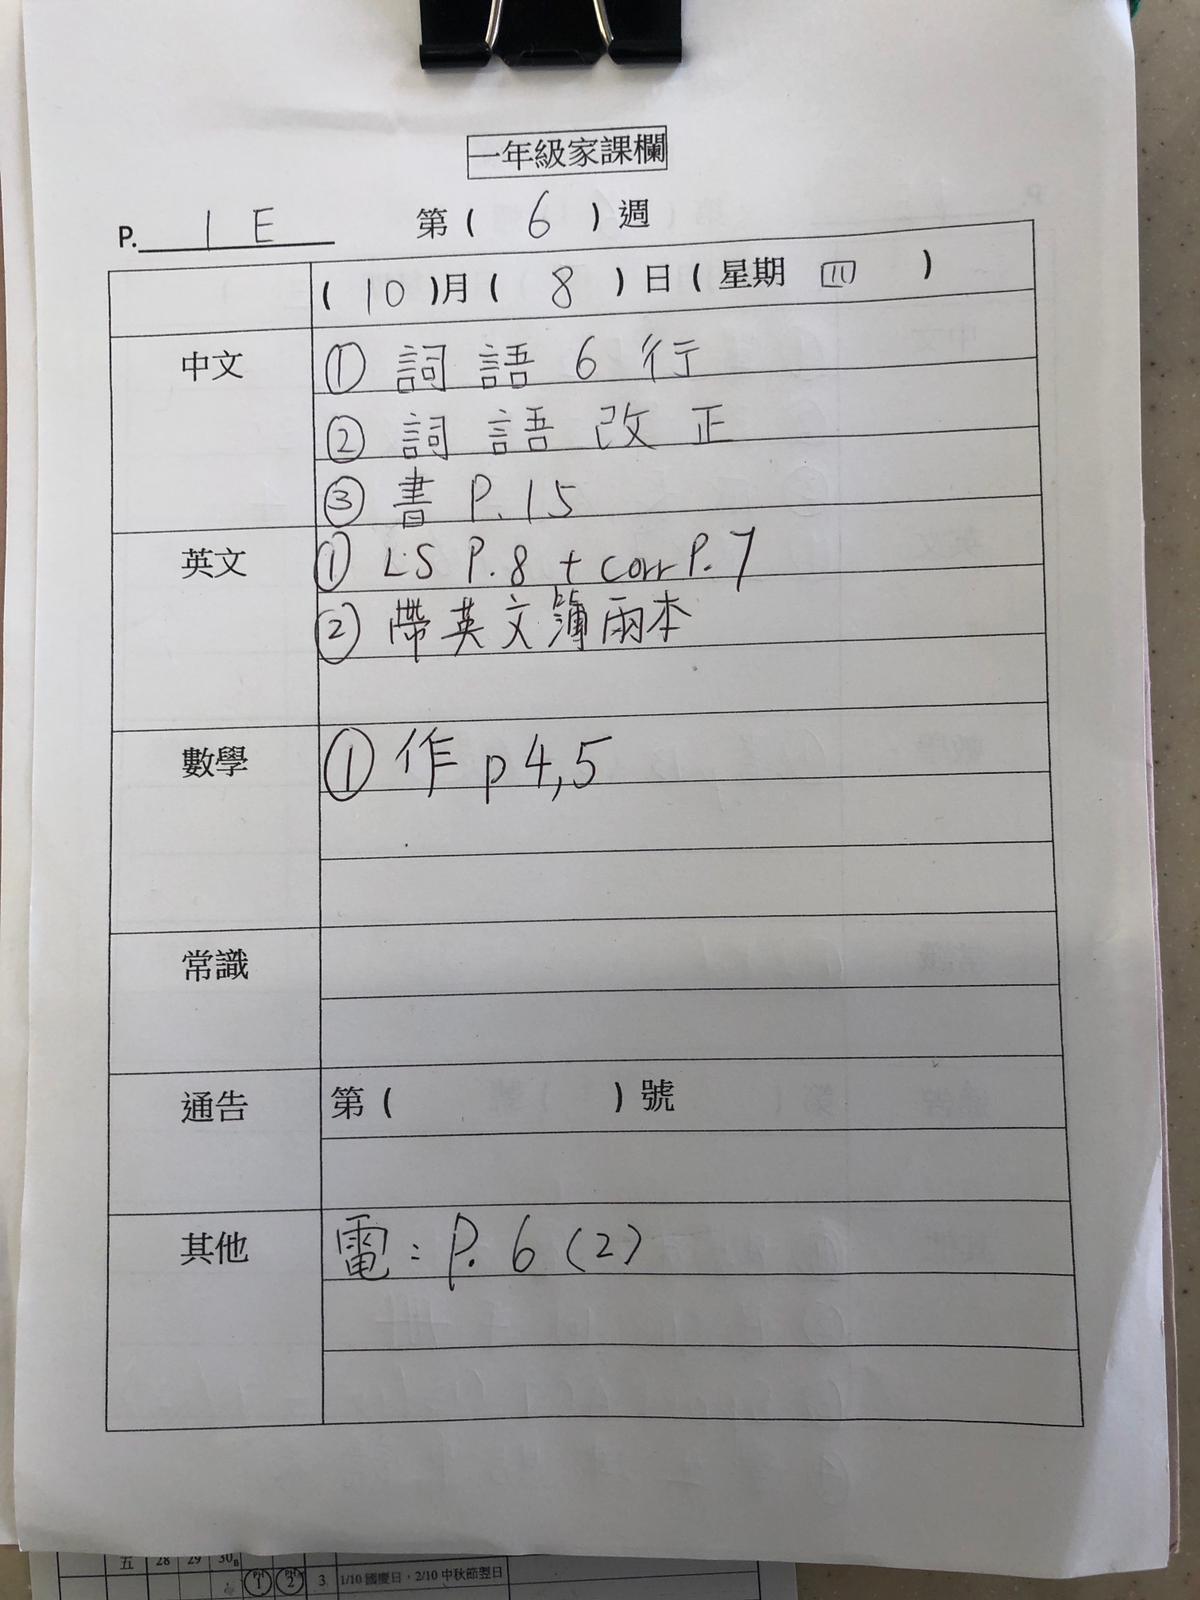 一年級家課欄
P. 1E 第 ( 6 ) 週
( 10 )月 ( 8 ) 日 ( 星期 四 )
中文 ① 詞語 6 行
② 詞語改正
③ 書 P.15
英文 ① LS P.8 + corr P.7
② 帶英文簿兩本
數學 ① 作 p 4,5
常識
通告 第 ( ) 號
其他 電 : P. 6 (2)
五 28 29 30
① ② 3 1/10 國慶日，2/10 中秋節翌日